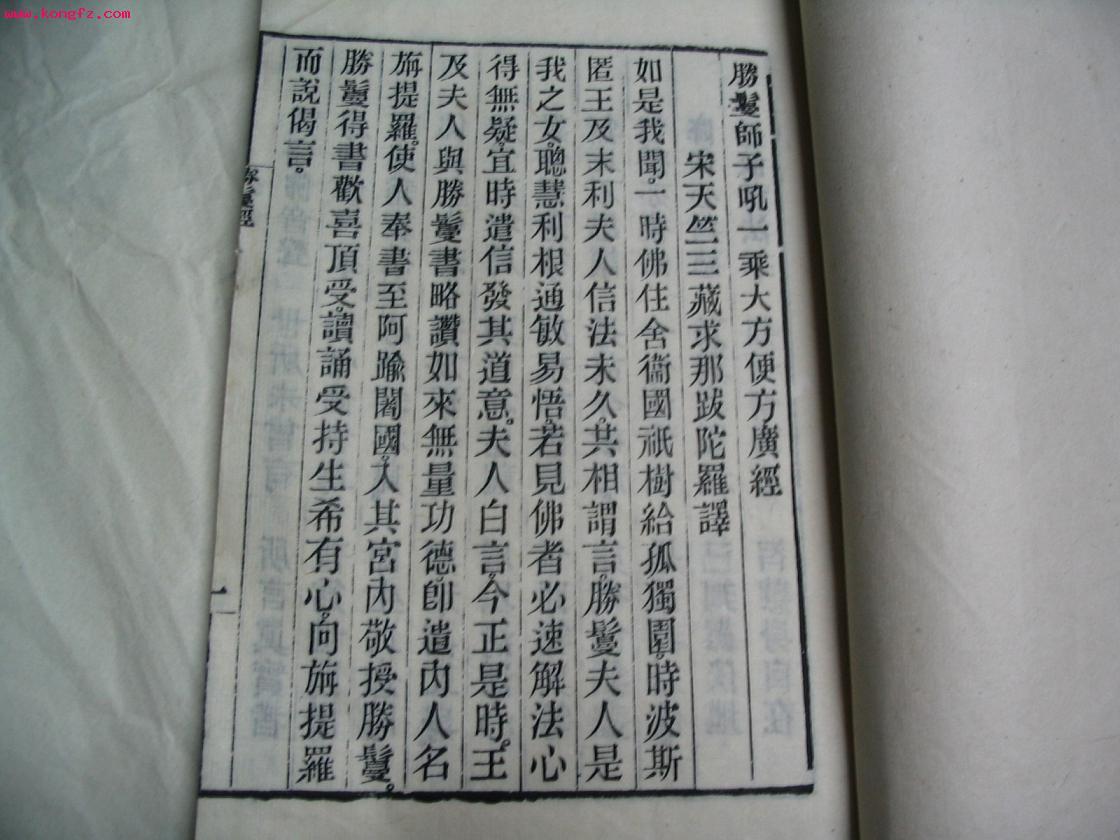 www.kongfz.com
勝鬘師子吼一乘大方便方廣經
宋天竺三藏求那跋陀羅譯
如是我聞。一時佛住舍衞國祇樹給孤獨園。時波斯
匿王及末利夫人信法未久。共相謂言。勝鬘夫人是
我之女。聰慧利根通敏易悟。若見佛者必速解法心
得無疑。宜時遣信發其道意。夫人白言。今正是時。王
及夫人與勝鬘書略讚如來無量功德。卽遣內人名
旃提羅。使人奉書至阿踰闍國。入其宮內敬授勝鬘。
勝鬘得書歡喜頂受。讀誦受持生希有心。向旃提羅
而說偈言。
勝鬘經
一